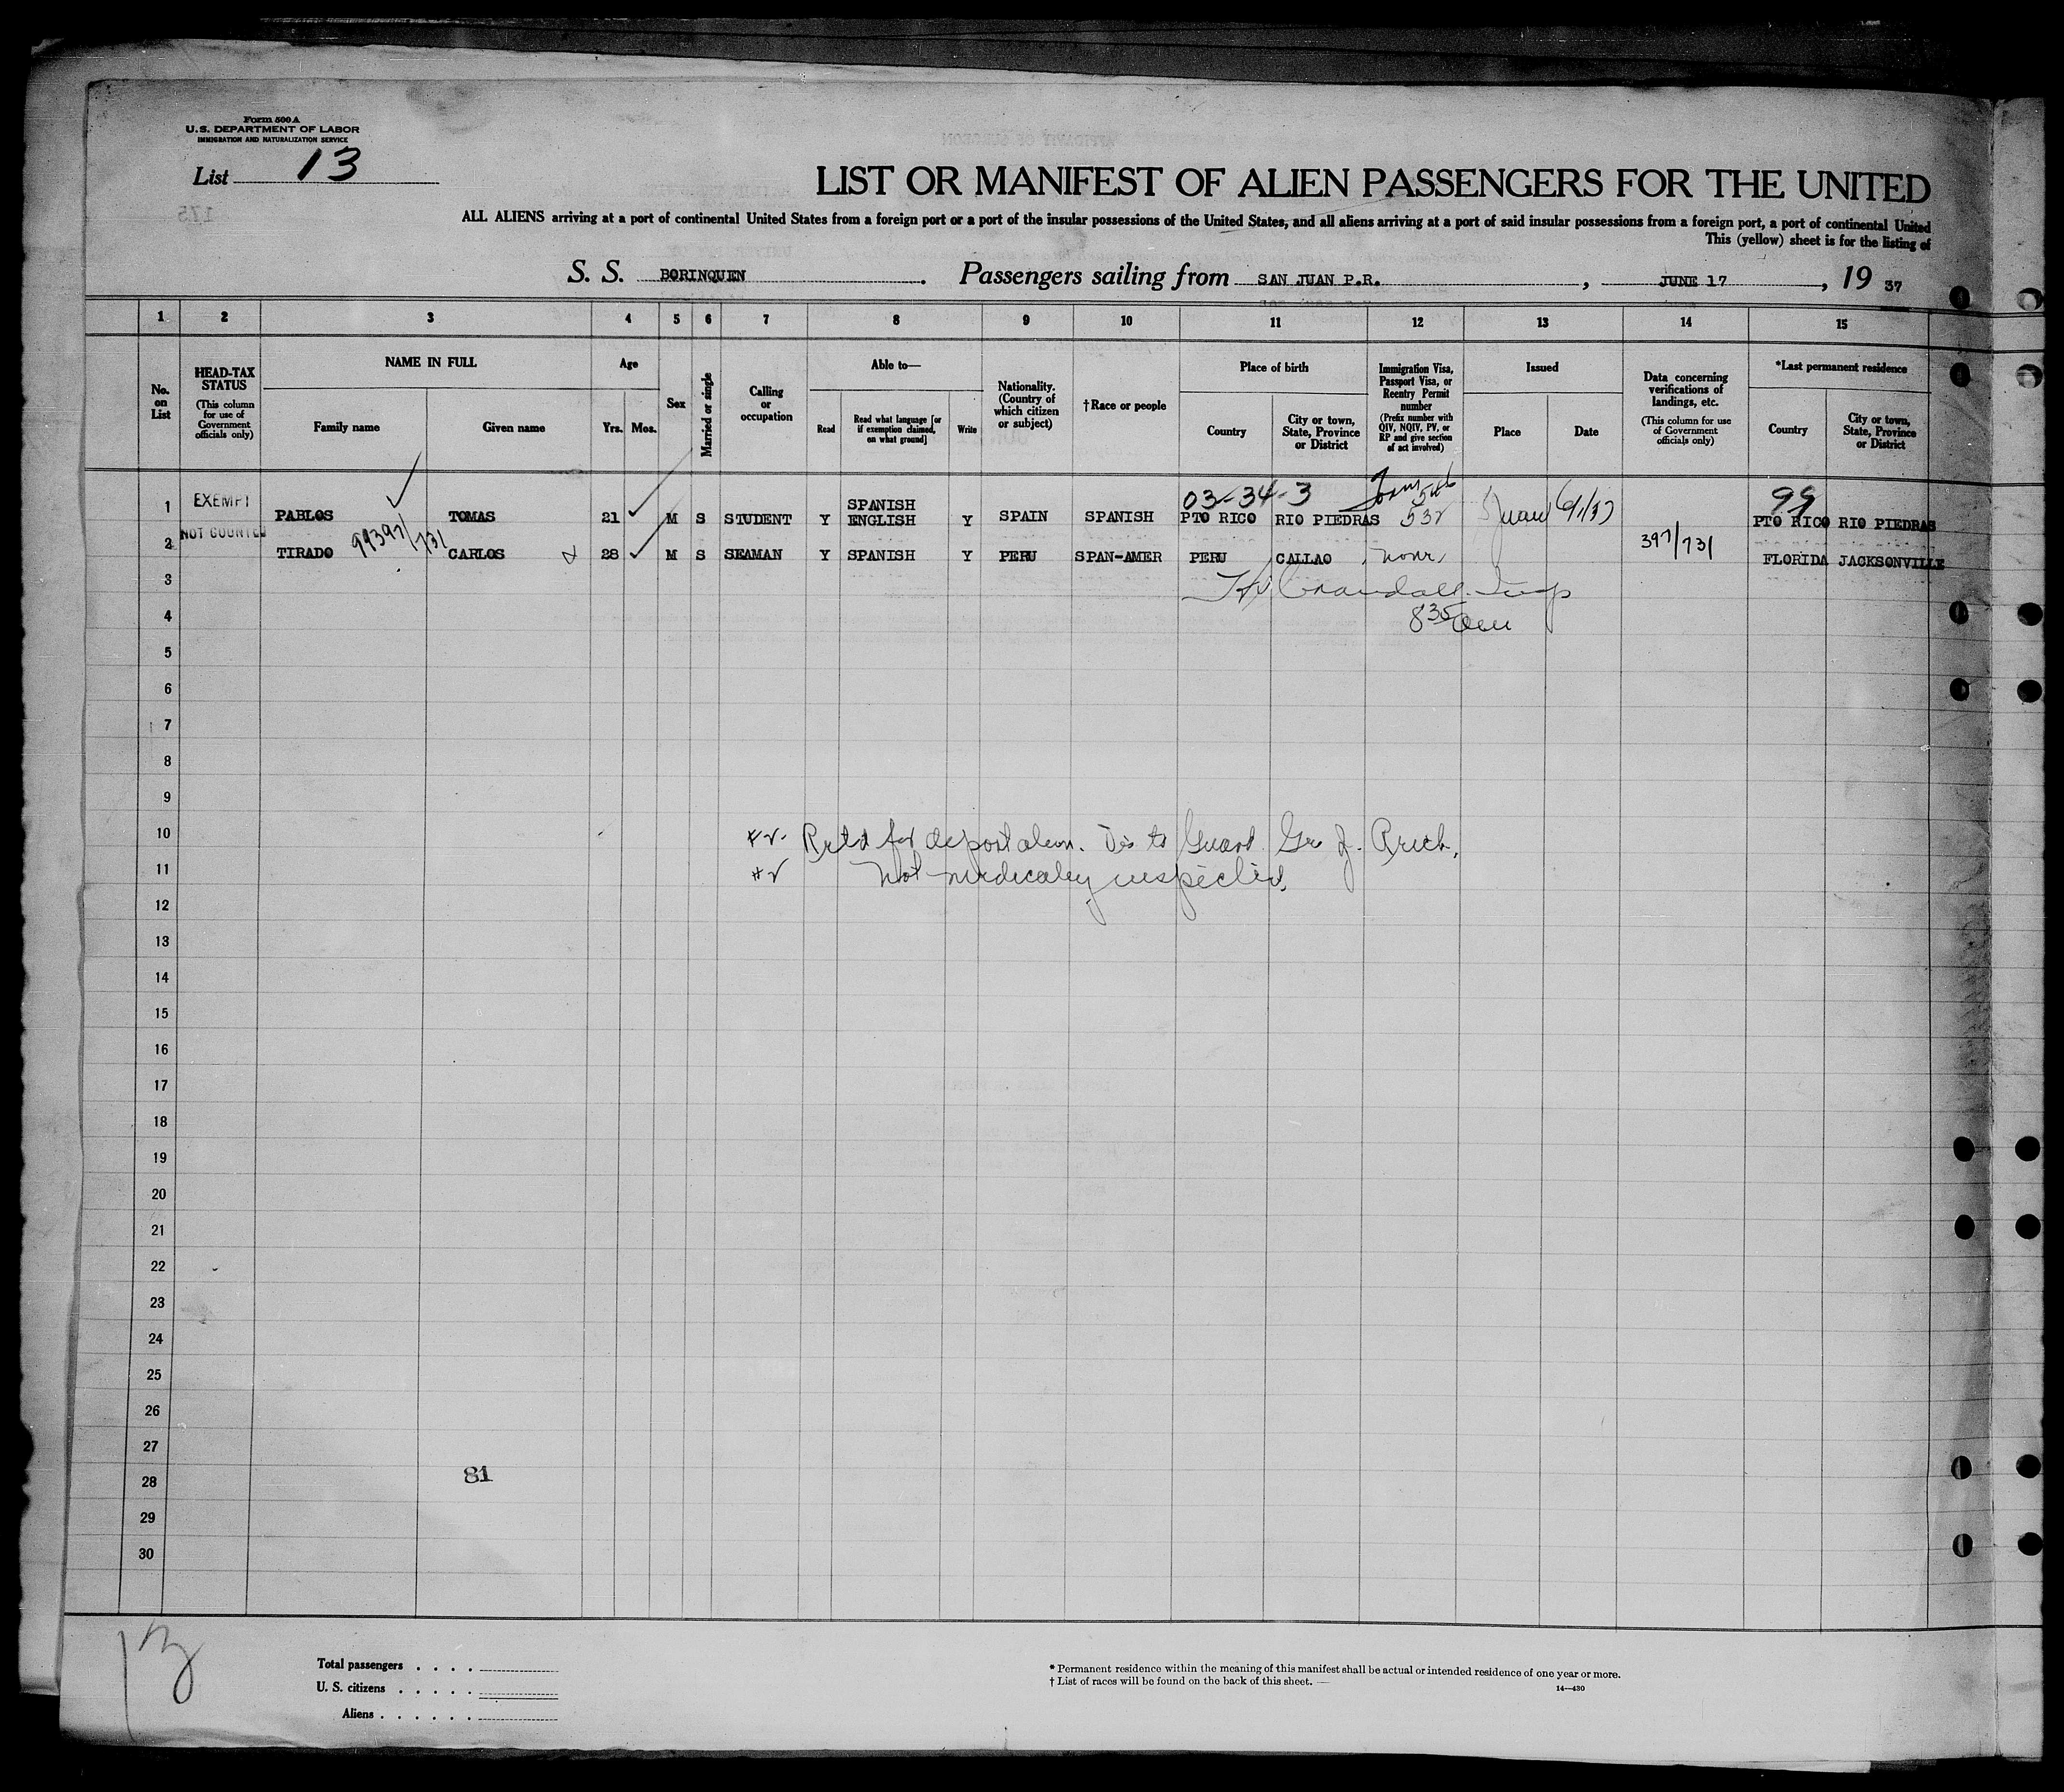 Form 500 A
U.S. DEPARTMENT OF LABOR
IMMIGRATION AND NATURALIZATION SERVICE
List 13
175
LIST OR MANIFEST OF ALIEN PASSENGERS FOR THE UNITED
ALL ALIENS arriving at a port of continental United States from a foreign port or a port of the insular possessions of the United States, and all aliens arriving at a port of said insular possessions from a foreign port, a port of continental United
This (yellow) sheet is for the listing of
S. S. BORINQUEN. Passengers sailing from SAN JUAN P.R., JUNE 17, 19 37
1 2 3 4 5 6 7 8 9 10 11 12 13 14 15
No. on List
HEAD-TAX STATUS (This column for use of Government officials only)
NAME IN FULL
Family name
Given name
Age
Yrs. Mos.
Sex
Married or single
Calling or occupation
Able to—
Read
Read what language [or if exemption claimed, on what ground]
Write
Nationality. (Country of which citizen or subject)
†Race or people
Place of birth
Country
City or town, State, Province or District
Immigration Visa, Passport Visa, or Reentry Permit number (Prefix number with QIV, NQIV, PV, or RP and give section of act involved)
Issued
Place
Date
Data concerning verifications of landings, etc. (This column for use of Government officials only)
*Last permanent residence
Country
City or town, State, Province or District
03-34-3 Form 546 99
1 EXEMPT PABLOS TOMAS 21 M S STUDENT Y SPANISH ENGLISH Y SPAIN SPANISH PTO RICO RIO PIEDRAS 532 S Juan 6/1/37 PTO RICO RIO PIEDRAS
2 NOT COUNTED TIRADO 99397/731 CARLOS 28 M S SEAMAN Y SPANISH Y PERU SPAN-AMER PERU CALLAO none 397/731 FLORIDA JACKSONVILLE
3 Crandall Insp
4 8 35 am
5
6
7
8
9
10 #2 for deportation. Dis to Guard Geo J.
11 #2 Not medically inspected.
12
13
14
15
16
17
18
19
20
21
22
23
24
25
26
27
28 81
29
30
13
Total passengers . . . .
U. S. citizens . . . . .
Aliens . . . . . .
* Permanent residence within the meaning of this manifest shall be actual or intended residence of one year or more.
† List of races will be found on the back of this sheet.
14—430